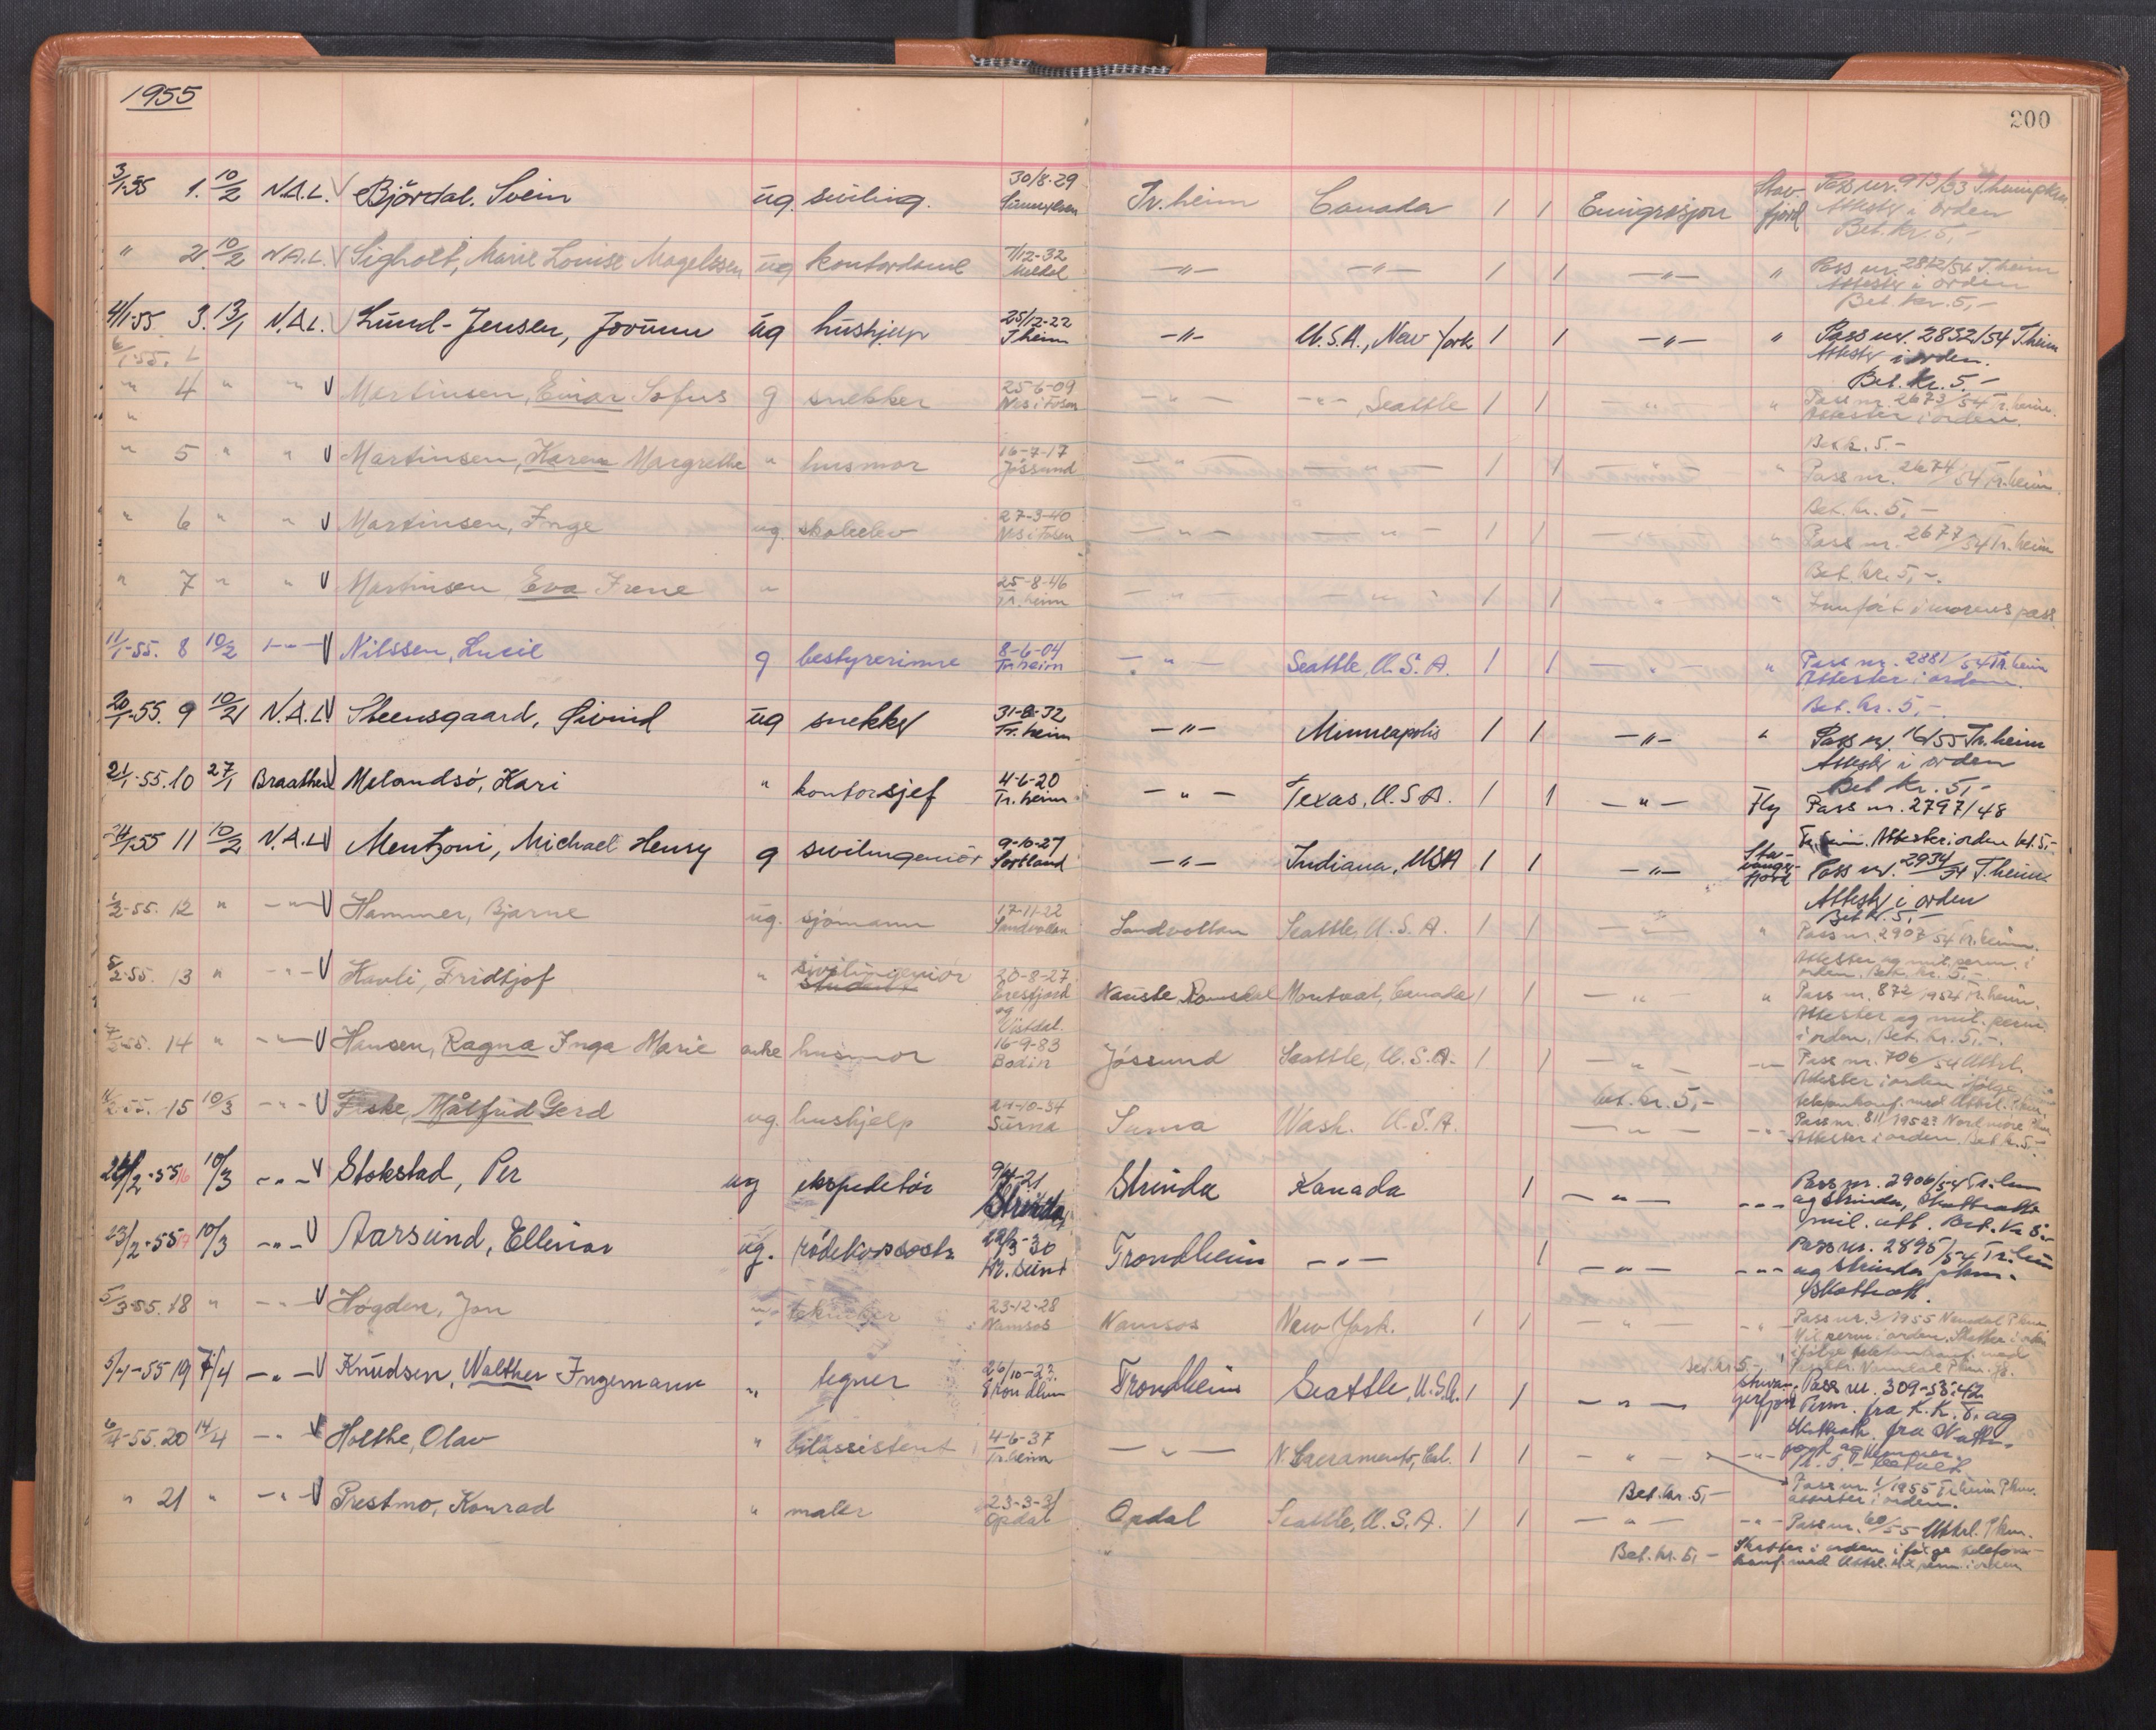 1955
200
3/1-55 1. 10/2 N.A.L. V Bjørdal, Svein ug. siviling. 30/8-29 Tr.heim Canada 1 1 Emigrasjon Stav.fjord Pass nr. 913/53
Attester i orden
Bet. kr. 5,-
" 2. 10/2 N.A.L. V Sigholt, Marie Louise Magelssen ug kontordame 7/12-32 Meldal -"- -"- 1 1 -"- " Pass nr. 2812/54 T.heim
Attester i orden
Bet. kr. 5,-
4/1-55 3. 13/1 N.A.L. V Lund-Jensen, Jorunn ug hushjelp 25/12-22 T.heim -"- U.S.A., New York 1 1 -"- " Pass nr. 2832/54 T.heim
Attester i orden.
Bet. kr. 5.-
6/1-55.
" 4 " " V Martinsen, Einar Sofus g snekker 25-6-09 Nes i Fosen -"- -"-, Seattle 1 1 -"- " Pass nr. 2673/54 Tr.heim.
Attester i orden.
Bet. kr. 5.-
" 5 " " V Martinsen, Karen Margrethe " husmor 16-7-17 Jøssund -"- -"- 1 1 -"- " Pass nr. 2674/54 Tr.heim.
Bet. kr. 5,-
" 6 " " V Martinsen, Inge ug. skoleelev 27-3-40 Nes i Fosen -"- -"- 1 1 -"- " Pass nr. 2677/54 Tr.heim
Bet. kr. 5,-.
" 7 " " V Martinsen Eva Irene " 25-8-46 Tr.heim -"- -"- 1 1 -"- " Innført i morens pass.
11/1-55. 8 10/2 -"- V Nilssen, Lucie g bestyrerinne 8-6-04 Tr.heim -"- Seattle, U.S.A. 1 1 -"- " Pass nr. 2881/54 Tr.heim
Attester i orden.
Bet. kr. 5,-.
20/1-55. 9 10/2 N.A.L. V Steensgaard, Øivind ug snekker 31-8-32 Tr.heim -"- Minneapolis 1 1 -"- " Pass nr. 16/55 Tr.heim
Attester i orden
Bet kr. 5,-
21/1-55. 10 27/1 Braathen V Melandsø, Kari " kontorsjef 4-6-20 Tr.heim -"- Texas, U.S.A. 1 1 -"- Fly Pass nr. 2797/48
Tr.heim. Attester i orden bet. 5,-
24/1-55 11 10/2 N.A.L. V Mentzoni, Michael Henry g sivilingeniør 9-10-27 Sortland -"- Indiana, USA 1 1 -"- Stavangerfjord Pass nr. 2934/54 T.heim
Attester i orden
Bet kr. 5,-
2-55. 12 " -"- V Hammer, Bjarne ug. sjømann 17-11-22 Sandvollan Sandvollan Seattle, U.S.A. 1 1 -"- " Pass nr. 2907/54 Tr.heim.
Attester og mil.perm. i
orden. Bet. kr. 5,-
5/2-55. 13 " -"- V Havli, Fridtjof " sivilingeniør student 20-8-27 Eresfjord og Vistdal. Nauste, Romsdal Montreal, Canada 1 1 -"- " Pass nr. 872/1954 Tr.heim.
Attester og mil. perm.
i orden. Bet. kr. 5,-.
7/2-55. 14 " -"- V Hansen, Ragna Inga Marie enke husmor 16-9-83 Bodin Jøssund Seattle, U.S.A. 1 1 -"- -"- Pass nr. 706/54 Uttrl.
bet. kr. 5,- Attester i orden ifølge
telefonkonf. med Uttrl. Pkm.
2-55. 15 10/3 -"- V Fiske, Målfrid Gerd ug. hushjelp 24-10-34 Surna Surna Wash. U.S.A. -"- -"- Pass nr. 811/1952 Nordmøre Pkm
Attester i orden. Bet kr. 5.-
2-55 16 10/3 -"- V Stokstad, Per ug ekspeditør 9/4-21 Strinda Strinda Kanada 1 -"- -"- Pass nr. 2906/54 Tr.heim
og Strinda, Skatteatt.
mil. att. Bet. Kr 5.-
23/2-55 17 10/3 -"- V Aarsund, Ellinor ug. rødekorssøster 30 Kr.sund Trondheim -"- 1 -"- -"- Pass nr. 2895/54 Tr.heim
og Strinda pkm.
Skatteatt.
5/3-55. 18 " -"- V Høgden, Jon tekniker 23-12-28 Namsos Namsos New York. 1 1 -"- -"- Pass nr. 3/1955 Namdal Pkm.
Mil perm i orden. Skatter i orden
ifølge telefonkonf. med
Bet. kr 5.- Namdal Pkm.
5/4-55 19 7/4 -"- V Knudsen, Walther Ingemann " tegner 26/10-23. Trondheim Trondheim Seattle, U.S.A. 1 1 -"- Stavangerfjord Pass nr. 309-53.
Perm. fra K.K.
Skatteatt. fra
6/4-55. 20 14/4 -"- V Holthe, Olav " bilassistent 4-6-37 Tr.heim -"- N. Sacramento, Cal. 1 1 -"- -"-
Bet. kr. 5,- Pass nr. 1/1955 Tr.heim Pkm.
attester i orden.
" 21 " -"- V Prestmo, Konrad " maler 23-3-31 Opdal Opdal Seattle, U.S.A. 1 1 -"- -"- Pass nr. 60/55 Uttrl. Pkm.
Bet. kr. 5,- Skatter i orden ifølge telefon-
konf. med Uttrl. Mil perm i orden